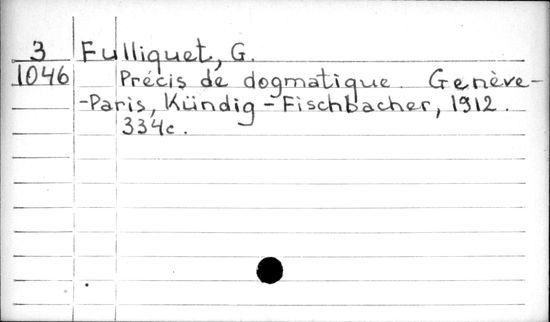 3 Fulliquet, G.
1046 Précis de dogmatique. Genève-
-Paris, Kündig - Fischbacher, 1912.
334c.